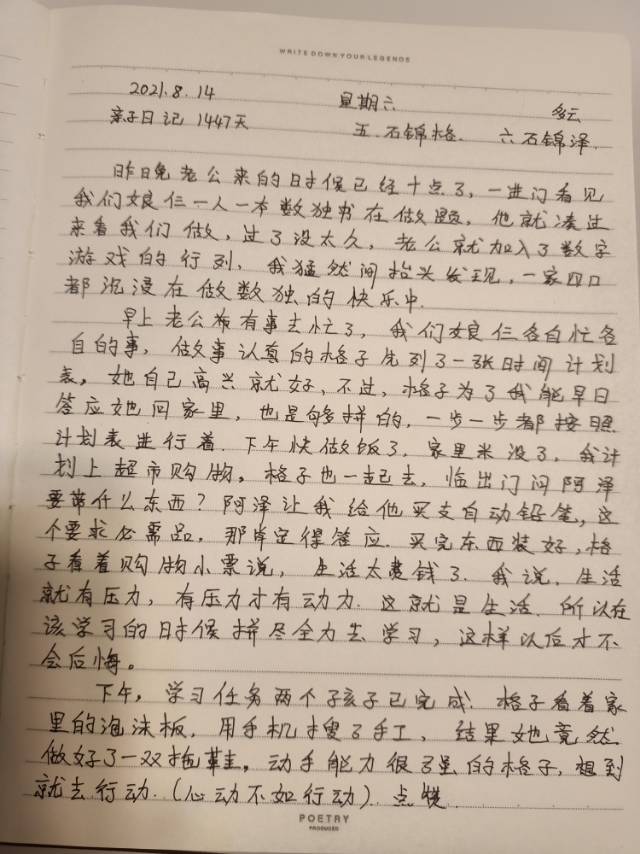 WRITE DOWN YOUR LEGENDS
2021.8.14 星期六 多云
亲子日记 1447天 五.石锦格. 六石锦泽.
昨日晚老公来的时候已经十点了,一进门看见
我们娘仨一人一本数独书在做题,他就凑过
来看我们做,过了没太久,老公就加入了数字
游戏的行列,我猛然间抬头发现,一家四口
都沉浸在做数独的快乐中.
早上老公有事去忙了,我们娘仨各自忙各
自的事,做事认真的格子先列了一张时间计划
表,她自己高兴就好,不过,格子为了我能早日
答应她回家里,也是够拼的,一步一步都按照
计划表进行着.下午快做饭了,家里米没了,我计
划上超市购物,格子也一起去,临出门问阿泽
要带什么东西?阿泽让我给他买支自动铅笔,这
个要求必需品,那肯定得答应.买完东西装好,格
子看着购物小票说,生活太费钱了.我说,生活
就有压力,有压力才有动力.这就是生活.所以在
该学习的时候拼尽全力去学习,这样以后才不
会后悔。
下午,学习任务两个孩子已完成.格子看着家
里的泡沫板,用手机搜了手工,结果她竟然
做好了一双拖鞋,动手能力很强的格子,想到
就去行动.(心动不如行动)点赞.
POETRY
PRODUCED